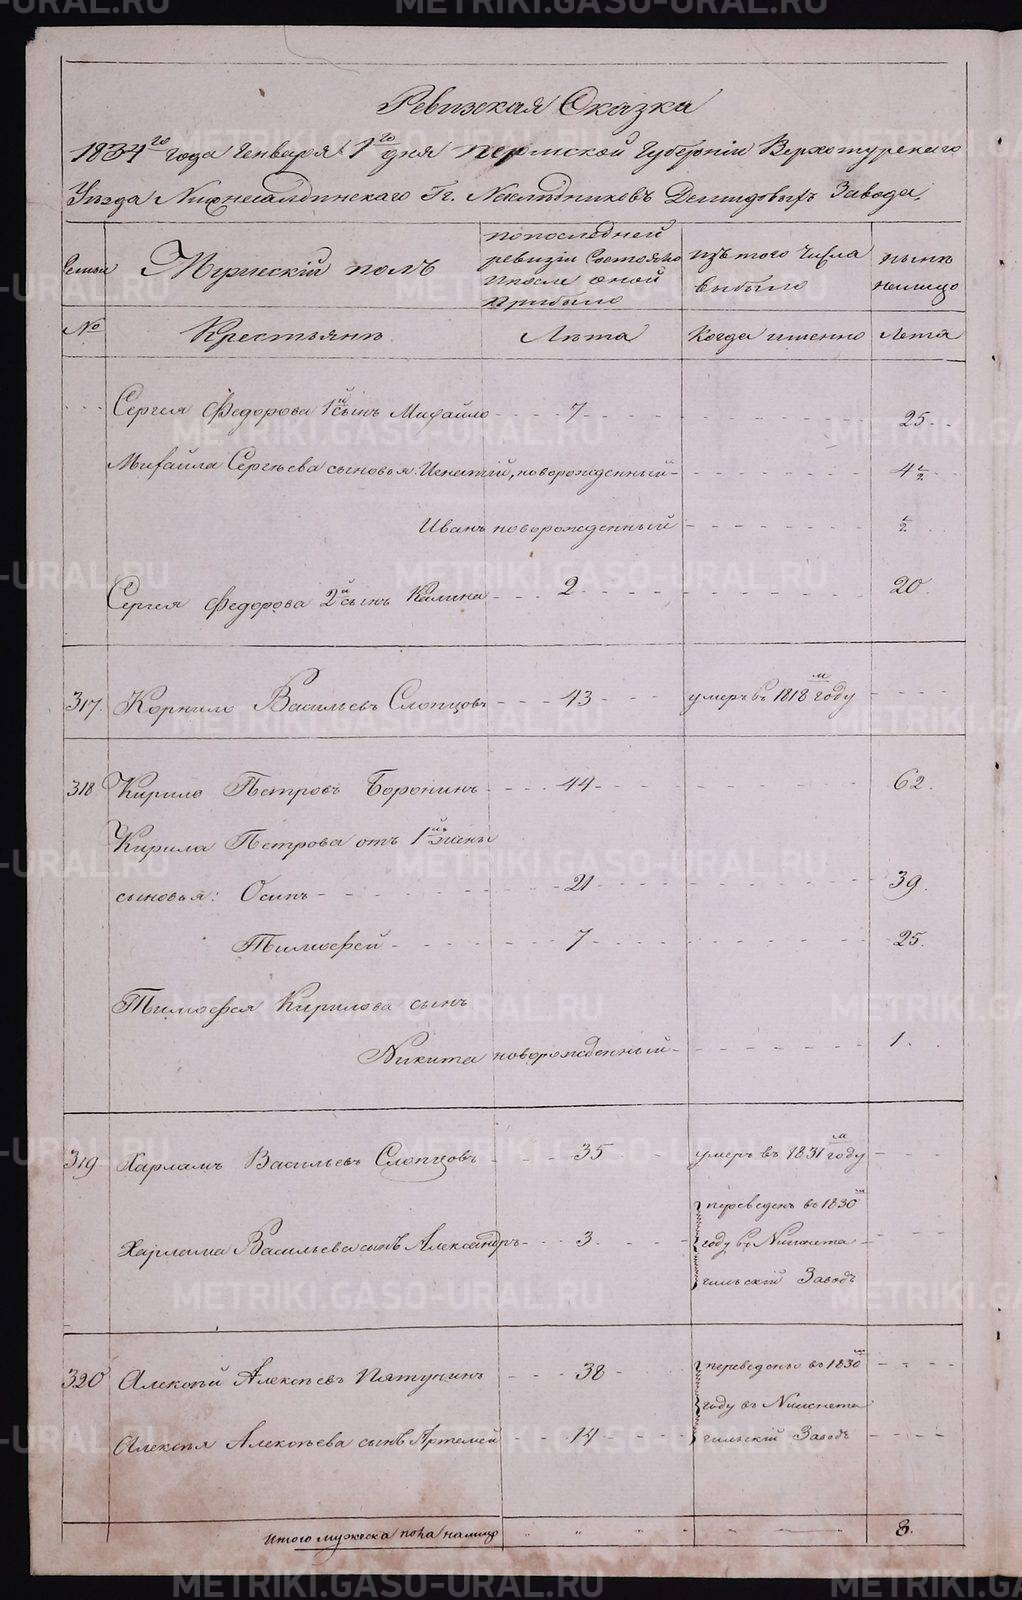 Ревизская Сказка
1834го года Генваря 1го дня Пермской Губернiи Верхотурскаго
Уезда Нижнесалдинскаго Гг. Наследниковъ Демидовыхъ Завода.
Семьи
Мужескiй полъ
по последней ревизiи Состояло и после оной Прибыло
изъ того числа выбыло
ныне на лицо
№
Крестьяне
Лета
Когда именно
Лета
Сергея Федорова 1й сынъ Михайло 7 25
Михайла Сергеева сыновья: Игнатiй, новорожденный 4 1/2
Иванъ новорожденный 1/2
Сергея Федорова 2й сынъ Калина 2 20
317. Корнило Васильевъ Слопцовъ 43 умеръ въ 1818м году
318 Кирило Петровъ Боронинъ 44 62.
Кирила Петрова отъ 1й жены
сыновья: Осипъ 21 39.
Тимофей 7 25.
Тимофея Кирилова сынъ
Никита новорожденный 1.
319 Харламъ Васильевъ Слопцовъ 35 умеръ въ 1831м году
Харлама Васильева сынъ Александръ 3 переведенъ въ 1830м
году въ Нижнета
гильскiй Заводъ
320 Алексей Алексеевъ Пятунинъ 38 переведены въ 1830м
году въ Нижнета
Алексея Алексеева сынъ Артемей 14 гильскiй Заводъ
Итого мужеска пола на лицо 8.
METRIKI.GASO-URAL.RU